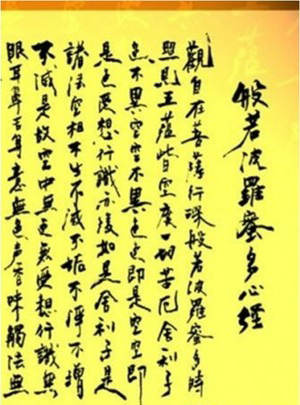 般若波羅蜜多心經
觀自在菩薩行深般若波羅蜜多時
照見五蘊皆空度一切苦厄舍利子
色不異空空不異色色即是空空即
是色受想行識亦復如是舍利子是
諸法空相不生不滅不垢不淨不增
不減是故空中無色無受想行識無
眼耳鼻舌身意無色聲香味觸法無